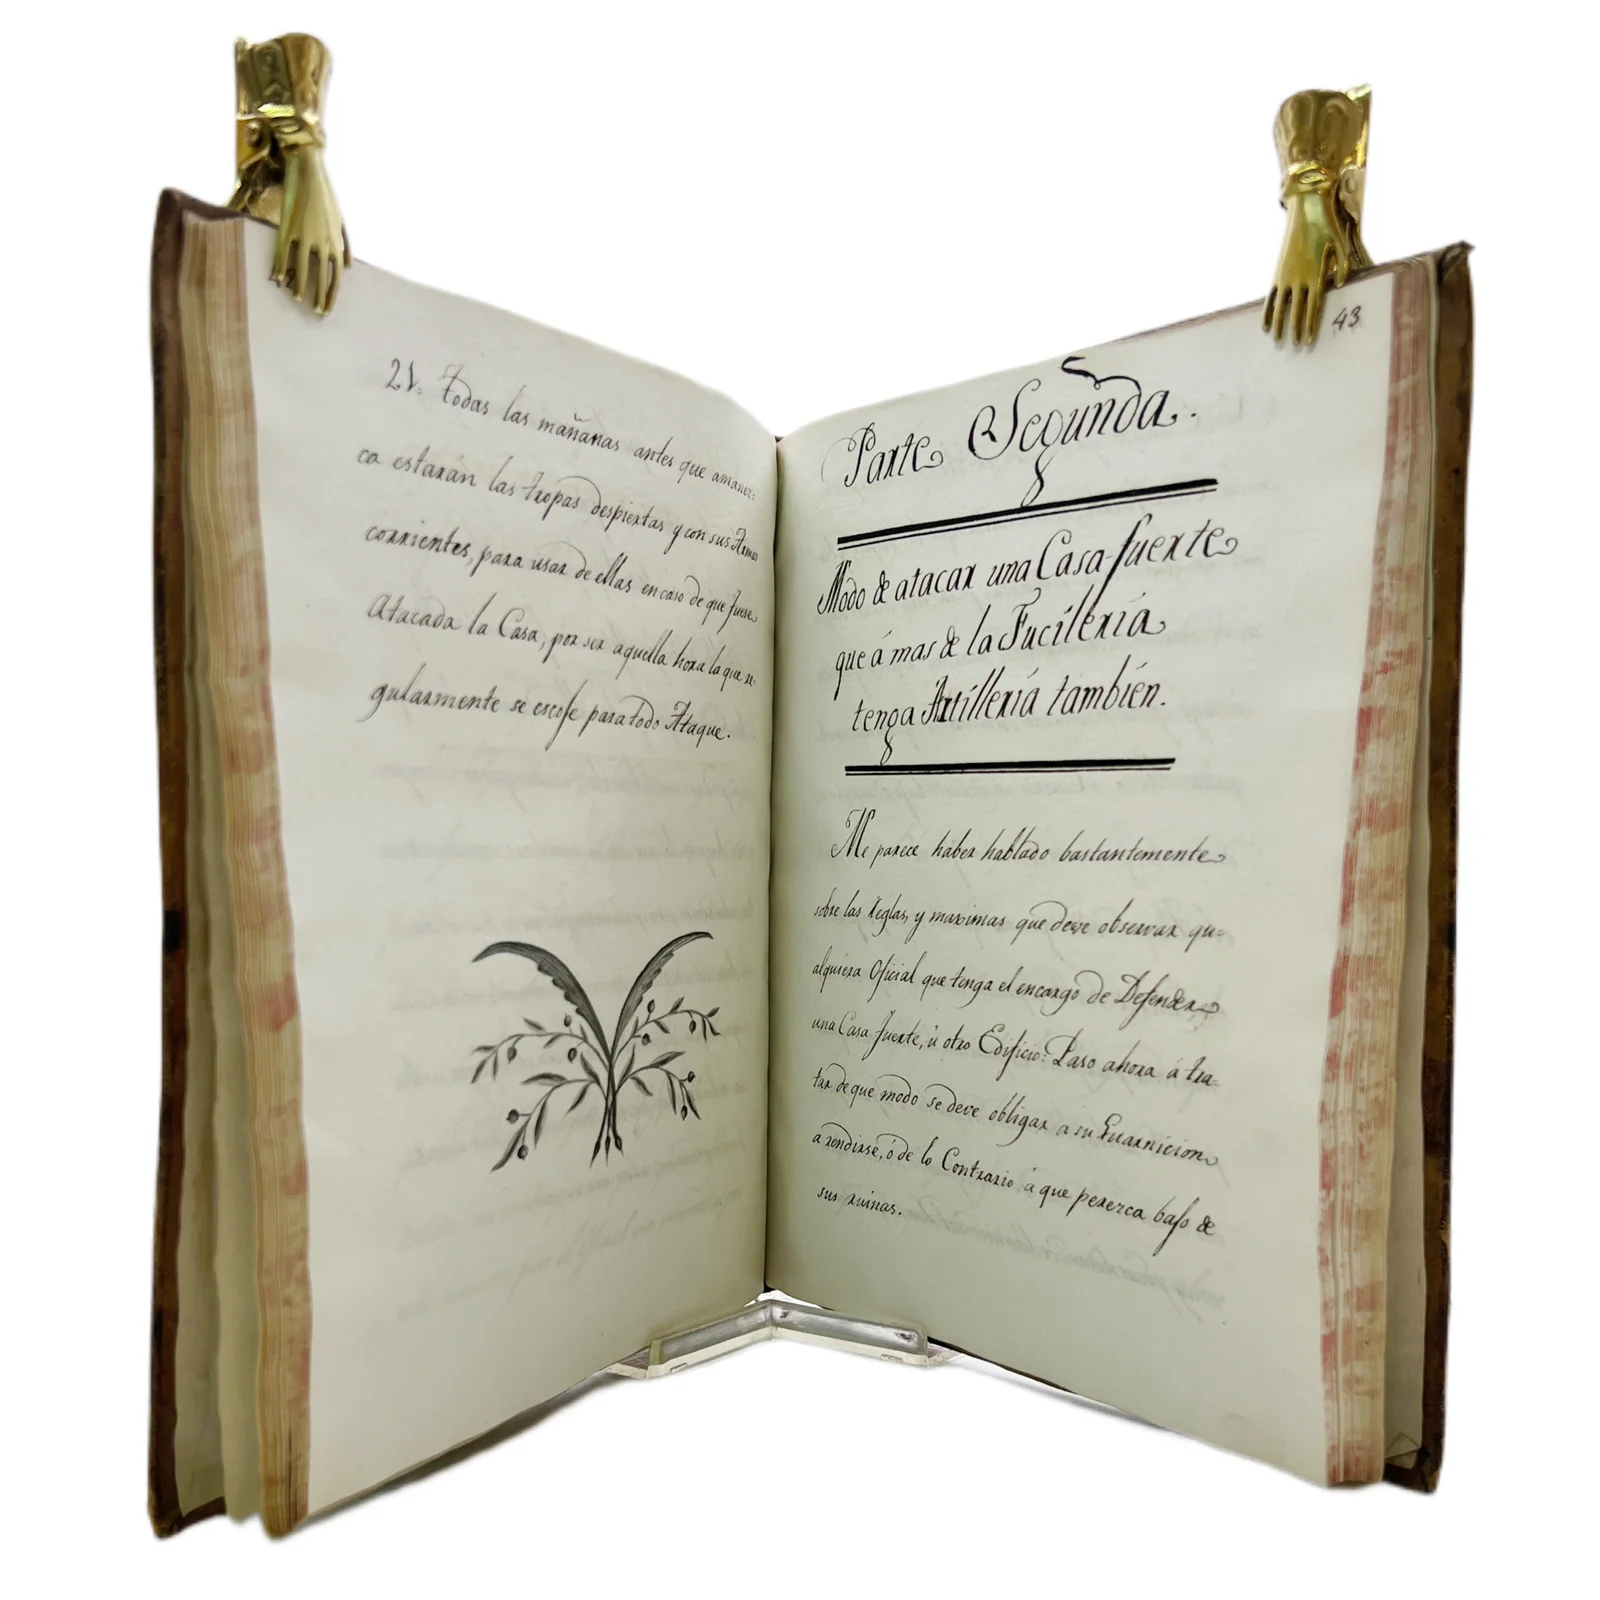 42
21. Todas las mañanas antes que amanez=
ca estarán las tropas despiertas y con sus Armas
corrientes, para usar de ellas en caso de que fuese
Atacada la Casa, por ser aquella hora la que re=
gularmente se escoje para todo Ataque.
43
Parte Segunda.
Modo de atacar una Casa-fuerte
que á mas de la Fucilería
tenga Artillería también.
Me parece haber hablado bastantemente
sobre las reglas, y maximas que deve observar qu=
alquiera Oficial que tenga el encargo de Defender
una Casa fuerte, ú otro Edificio: Paso ahora á tra=
tar de que modo se deve obligar a su Guarnicion
a rendirse, ó de lo Contrario á que perezca bajo de
sus ruinas.